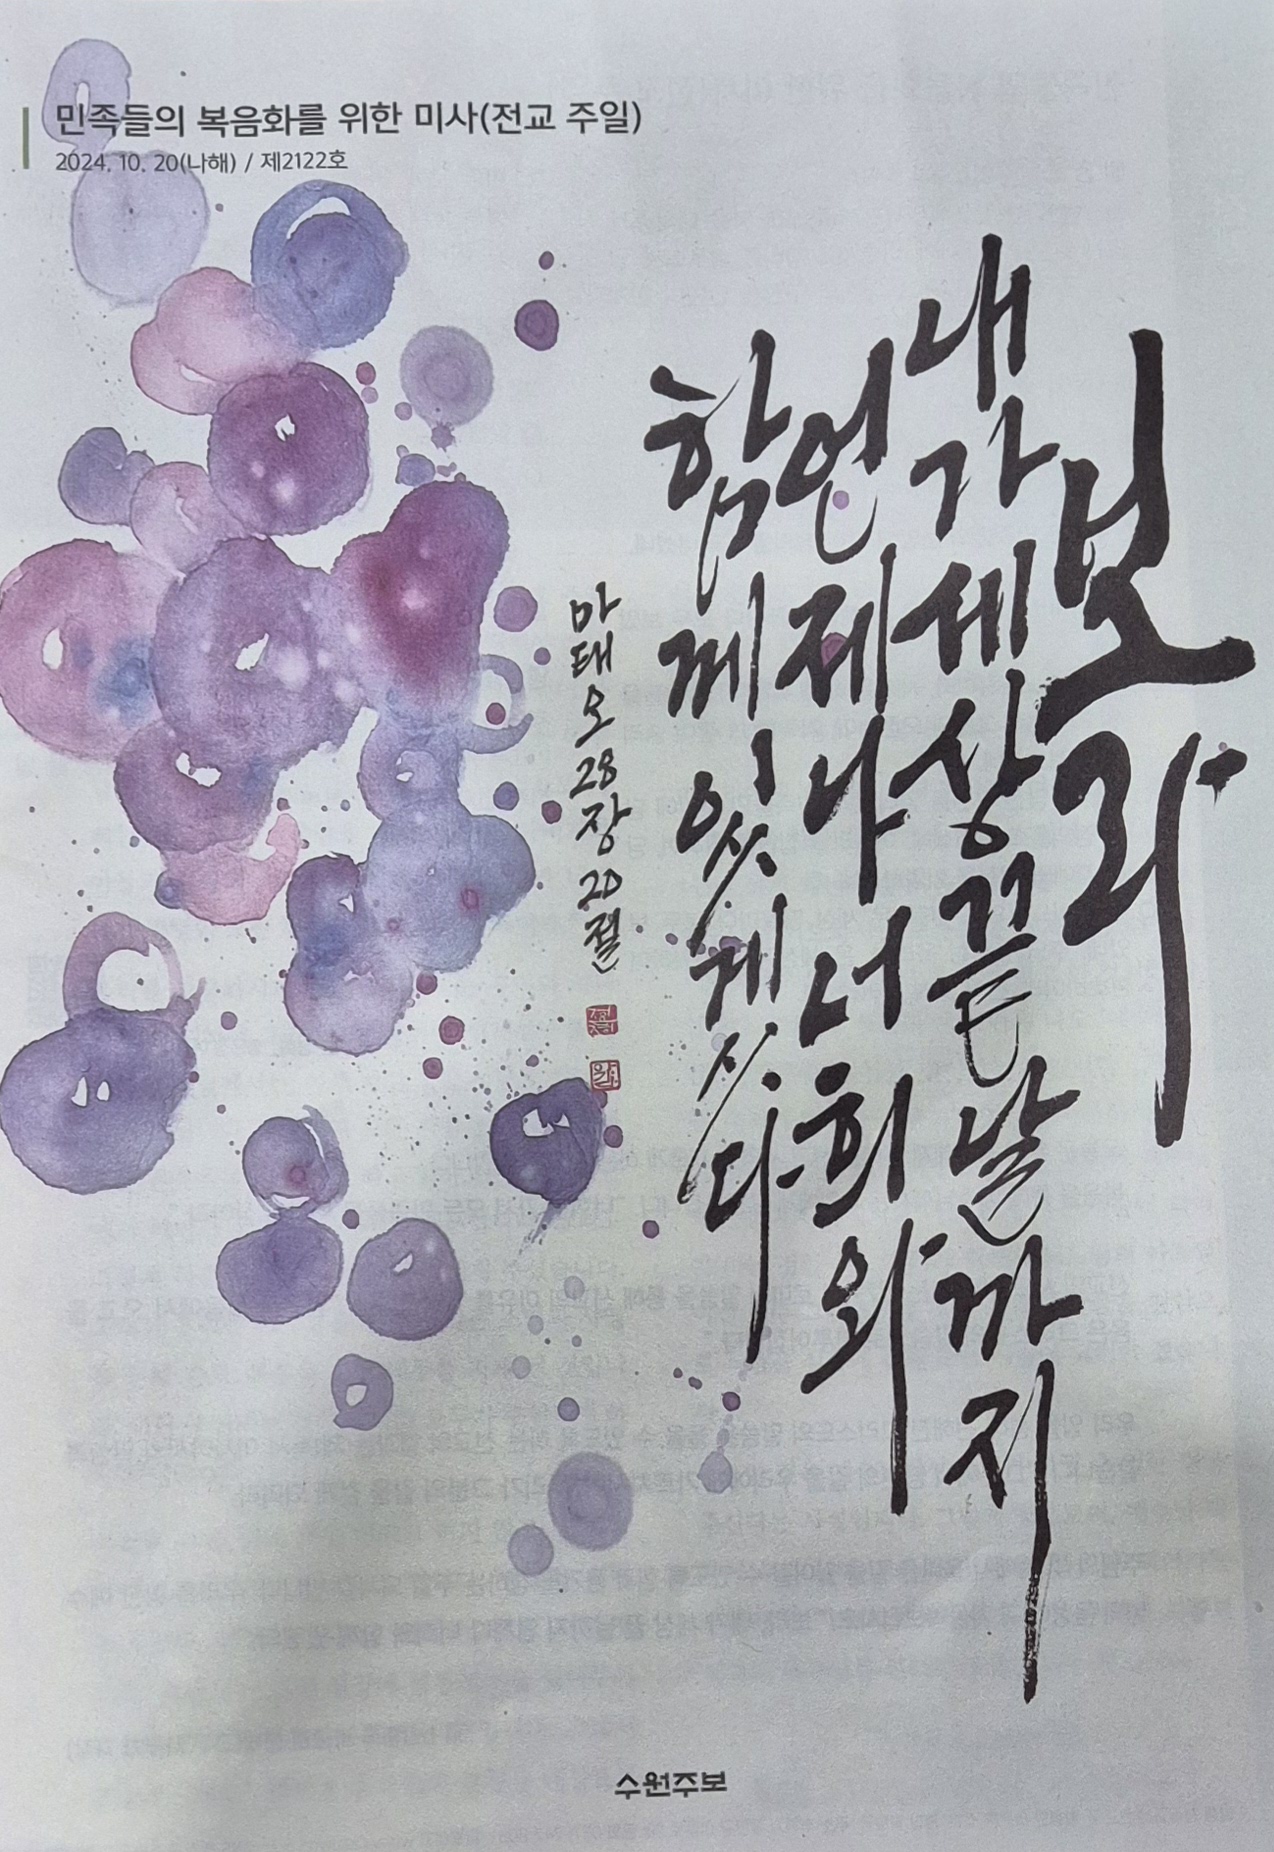 민족들의 복음화를 위한 미사(전교 주일)
2024. 10. 20(나해) / 제2122호
보라
내가 세상 끝 날까지
언제나 너희와
함께 있겠다
마태오 28장 20절
수원주보